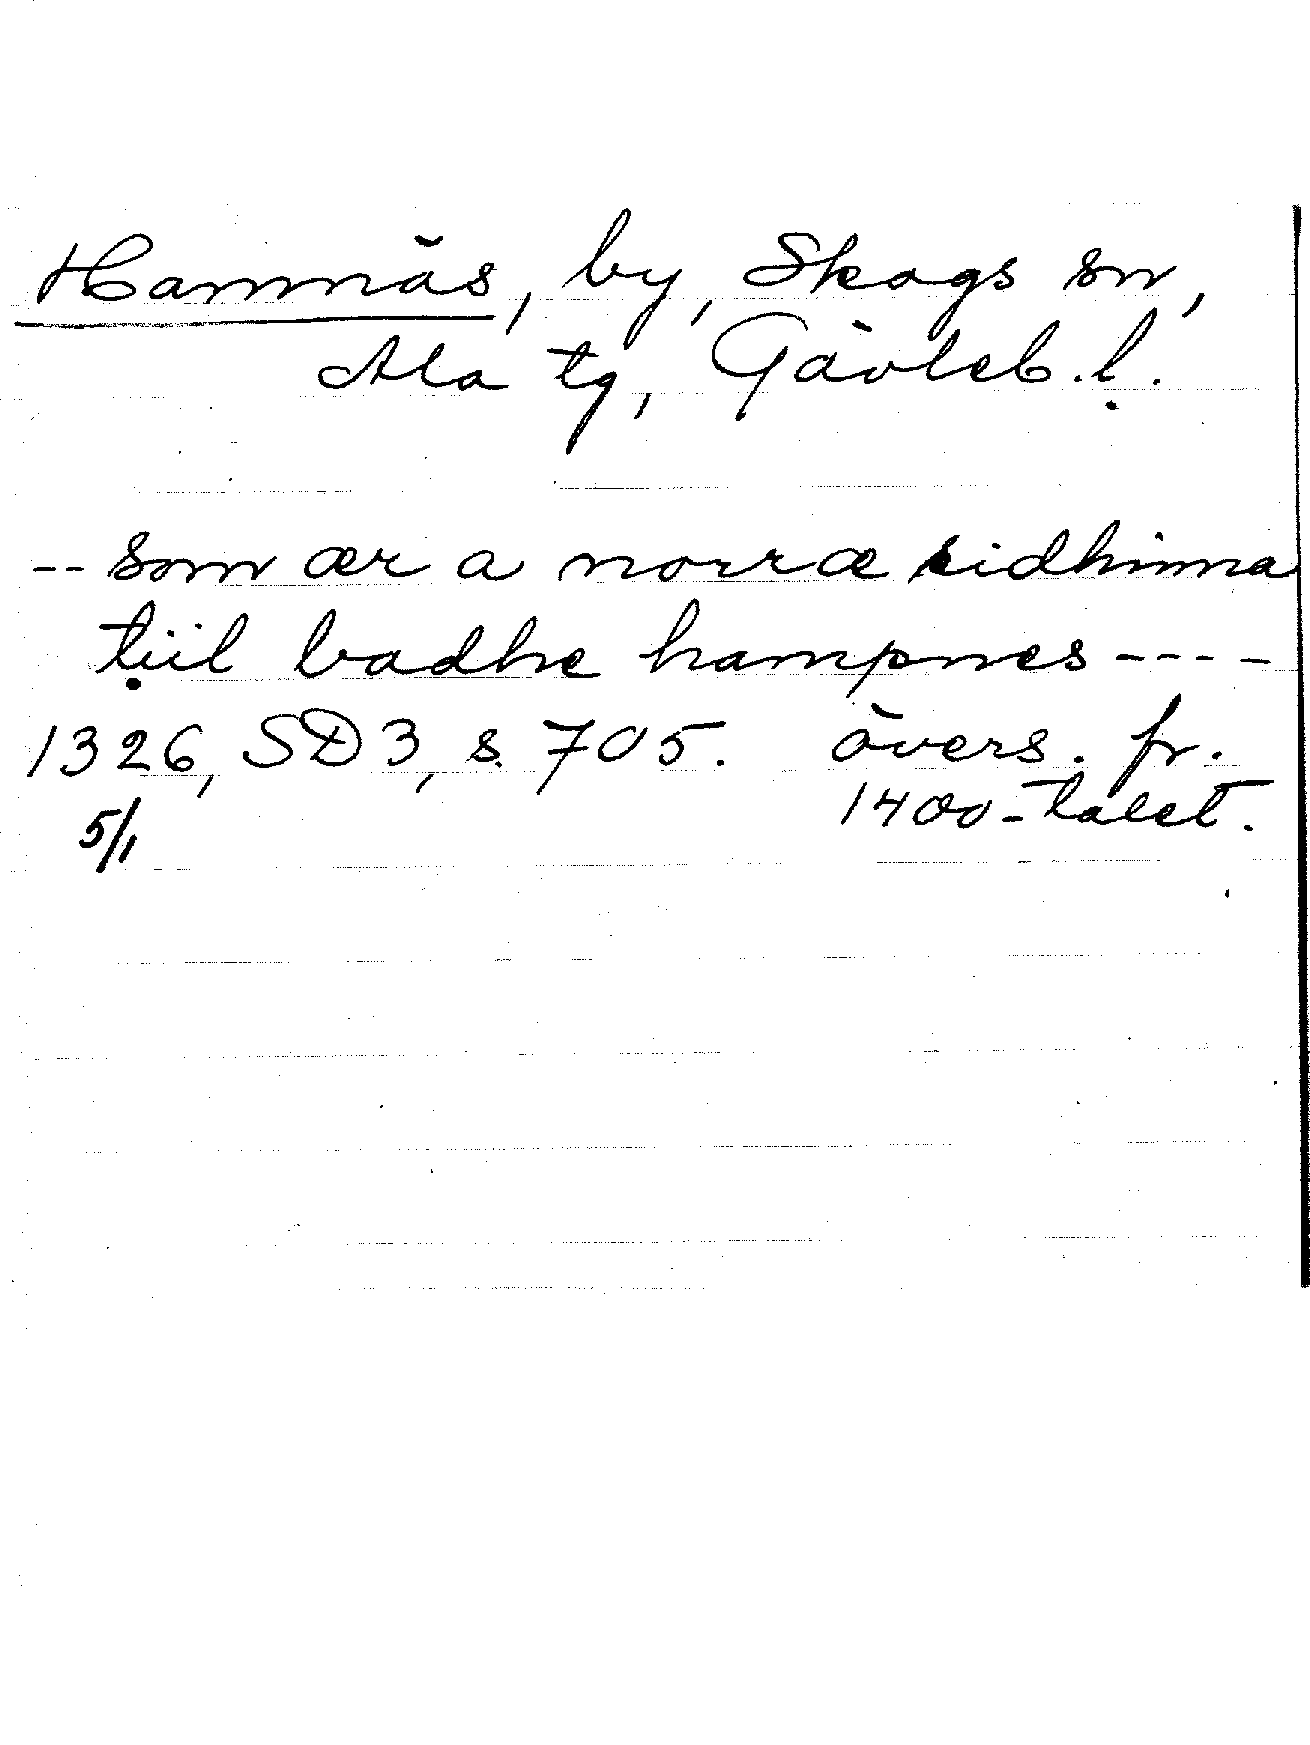 Hamnäs, by, Skogs sn,
Ala tg, Gävleb. l.
-- som ær a norræ sidhinna
tiil badhe hampnes ----
1326, SD3, s. 705. övers. fr.
5/1 1400-talet.